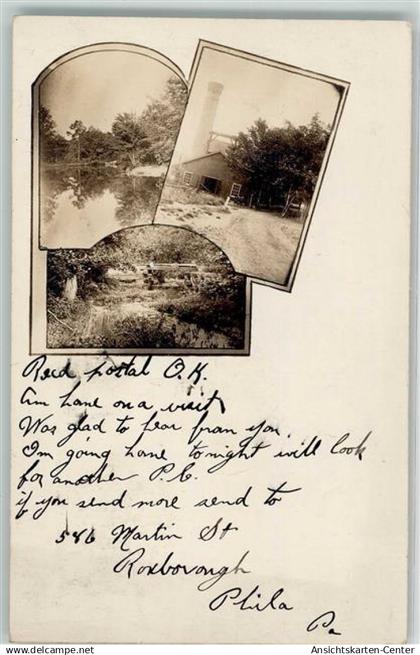 Recd postal O.K.
Am hane on a visit
Was glad to hear fran you.
I'm going hane to-night will look
for another P.C.
if you send more send to
586 Martin St
Roxborough
Phila
Pa
www.ansichtskarten-center.de
Ansichtskarten-Center